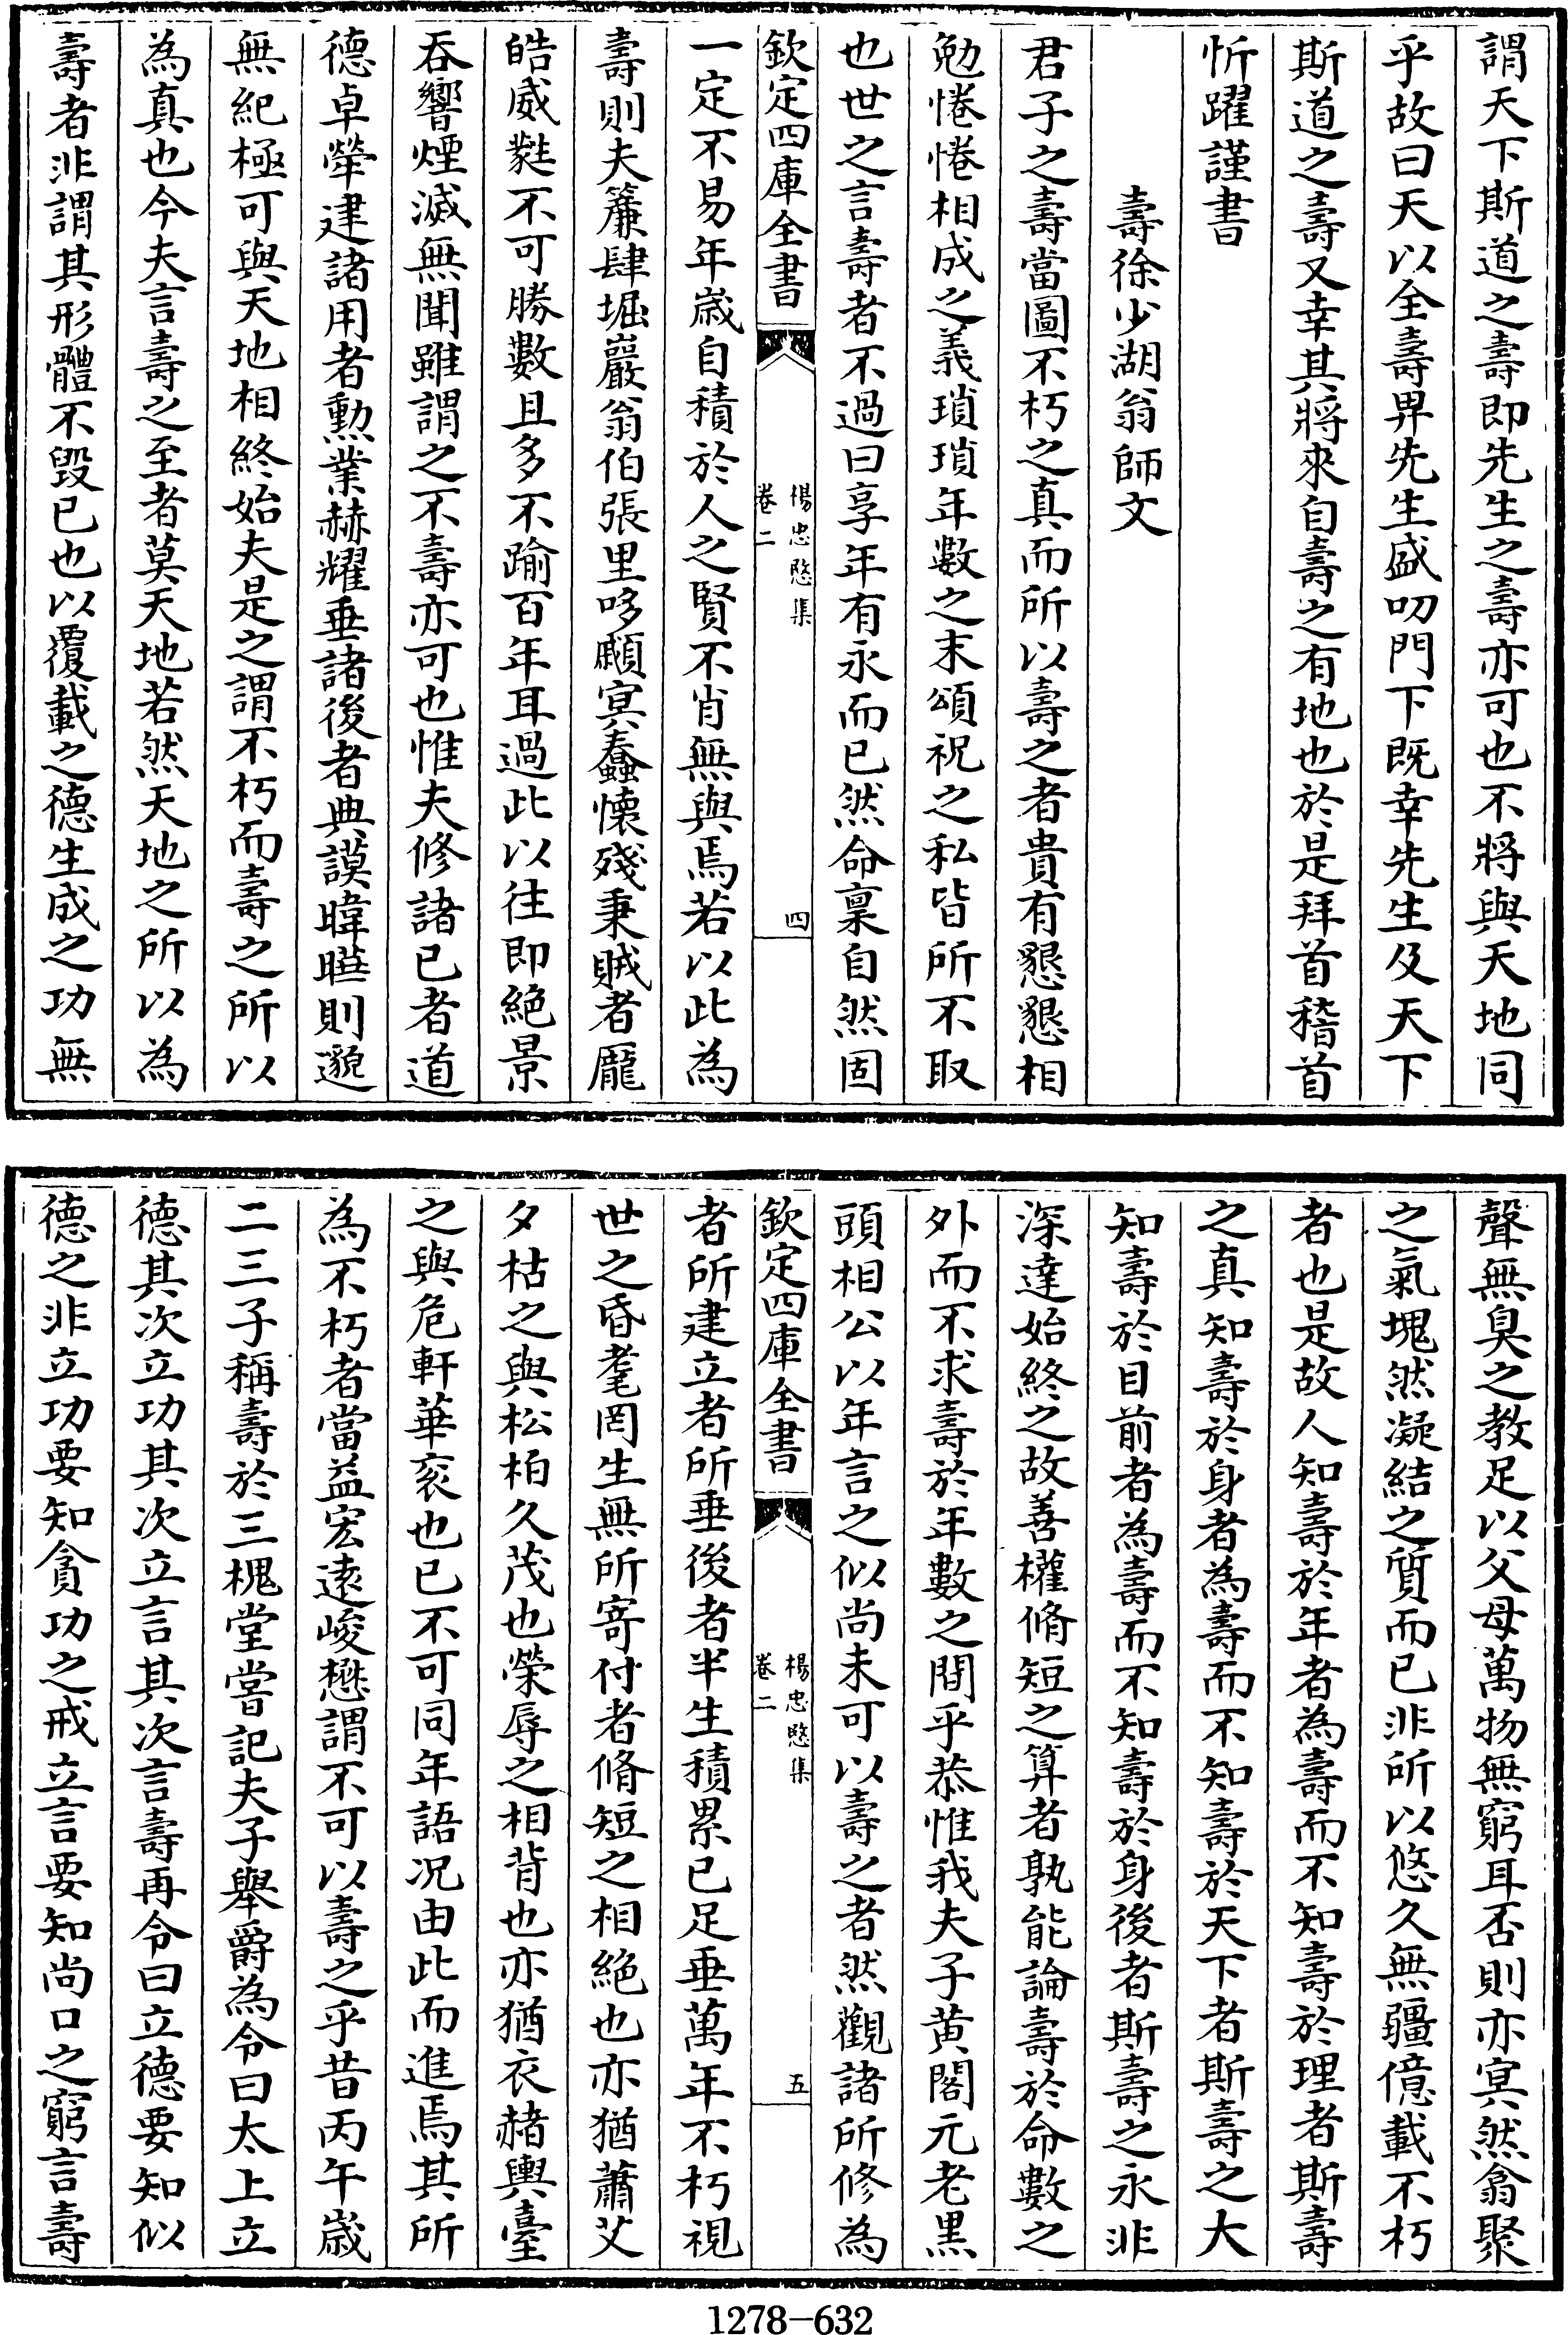 謂天下斯道之壽即先生之壽亦可也不將與天地同
乎故曰天以全壽畀先生盛叨門下既幸先生及天下
斯道之壽又幸其將來自壽之有地也於是拜首稽首
忻躍謹書
壽徐少湖翁師文
君子之壽當圖不朽之真而所以壽之者貴有懇懇相
勉惓惓相成之義瑣瑣年數之末頌祝之私皆所不取
也世之言壽者不過曰享年有永而已然命稟自然固
欽定四庫全書
楊忠愍集
卷二
四
一定不易年嵗自積於人之賢不肖無與焉若以此為
壽則夫簾肆堀巖翁伯張里哆顣㝠蠢懷殘秉賊者龎
皓威蕤不可勝數且多不踰百年耳過此以往即絶景
吞響煙滅無聞雖謂之不壽亦可也惟夫修諸已者道
德卓犖建諸用者勲業赫耀垂諸後者典謨暐曄則邈
無紀極可與天地相終始夫是之謂不朽而壽之所以
為真也今夫言壽之至者莫天地若然天地之所以為
壽者非謂其形體不毁已也以覆載之德生成之功無
聲無臭之教足以父母萬物無窮耳否則亦㝠然翕聚
之氣塊然凝結之質而已非所以悠久無疆億載不朽
者也是故人知壽於年者為壽而不知壽於理者斯壽
之真知壽於身者為壽而不知壽於天下者斯壽之大
知壽於目前者為壽而不知壽於身後者斯壽之永非
深達始終之故善權脩短之算者孰能論壽於命數之
外而不求壽於年數之間乎恭惟我夫子黄閣元老黒
頭相公以年言之似尚未可以壽之者然觀諸所修為
欽定四庫全書
楊忠愍集
卷二
五
者所建立者所垂後者半生積累已足垂萬年不朽視
世之昏耄罔生無所寄付者脩短之相絶也亦猶蕭艾
夕枯之與松柏久茂也榮辱之相背也亦猶衣赭輿臺
之與危軒華衮也已不可同年語况由此而進焉其所
為不朽者當益宏逺峻懋謂不可以壽之乎昔丙午嵗
二三子稱壽於三槐堂嘗記夫子舉爵為令曰太上立
德其次立功其次立言其次言壽再令曰立德要知似
德之非立功要知貪功之戒立言要知尚口之窮言壽
1278-632